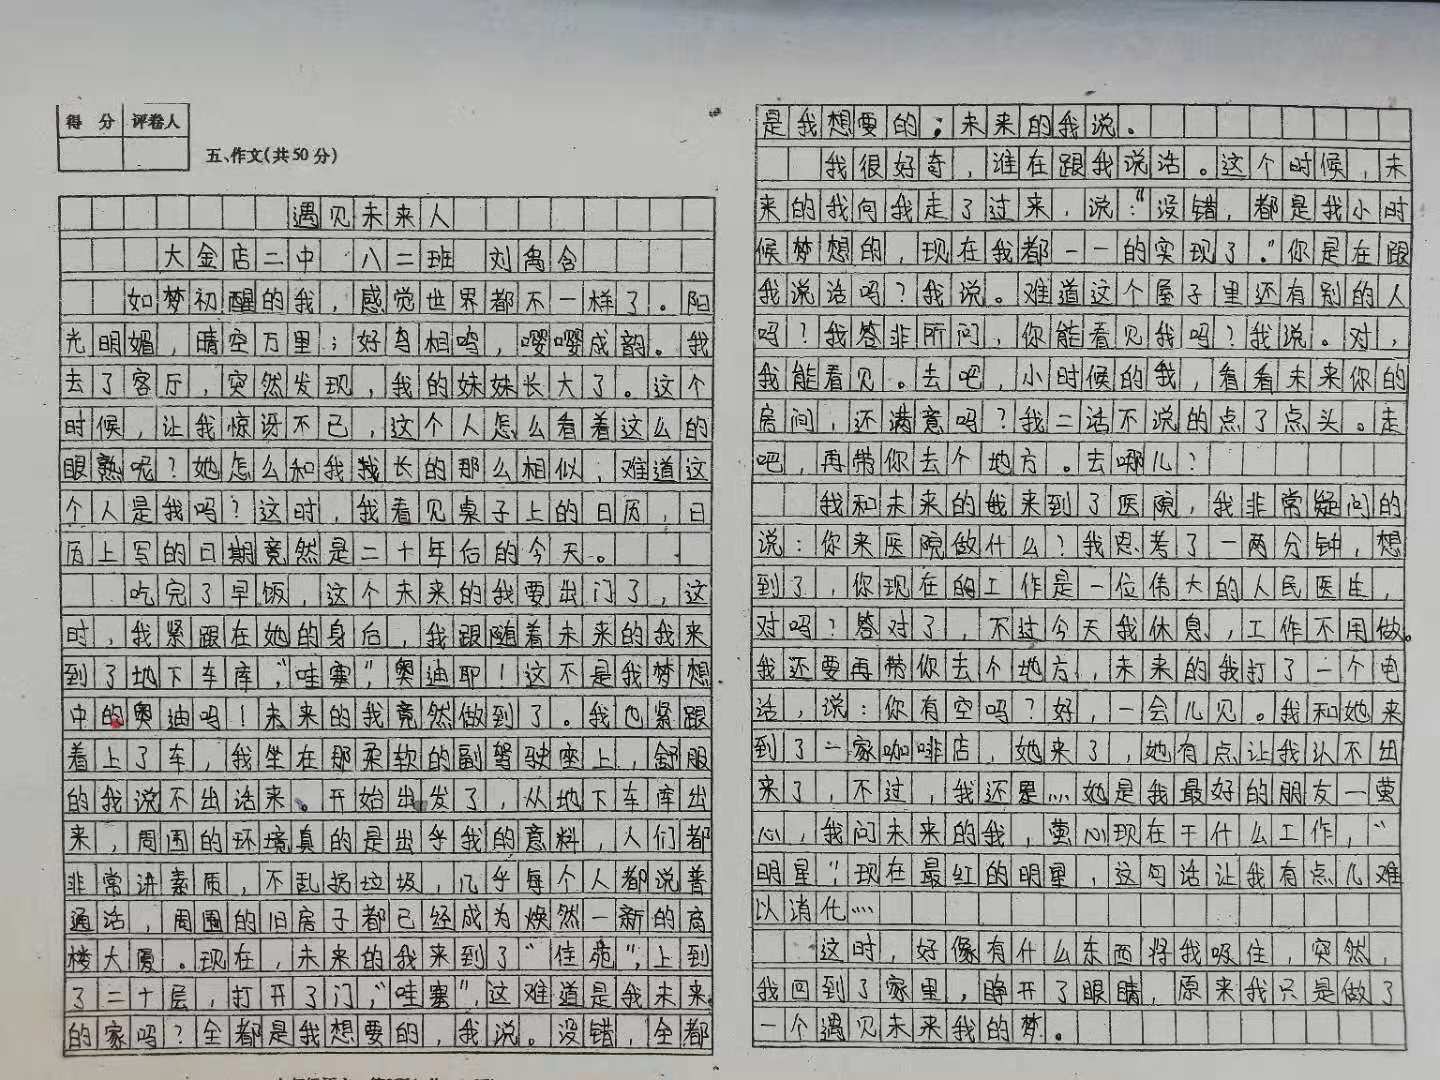 得 分 评卷人
五、作文(共50分)
遇见未来人
大金店二中 八二班 刘禹含
如梦初醒的我，感觉世界都不一样了。阳
光明媚，晴空万里；好鸟相鸣，嘤嘤成韵。我
去了客厅，突然发现，我的妹妹长大了。这个
时候，让我惊讶不已，这个人怎么看着这么的
眼熟呢？她怎么和我长的那么相似；难道这
个人是我吗？这时，我看见桌子上的日历，日
历上写的日期竟然是二十年后的今天。
吃完了早饭，这个未来的我要出门了，这
时，我紧跟在她的身后，我跟随着未来的我来
到了地下车库，“哇塞”，奥迪耶！这不是我梦想
中的奥迪吗！未来的我竟然做到了。我也紧跟
着上了车，我坐在那柔软的副驾驶座上，舒服
的我说不出话来。开始出发了，从地下车库出
来，周围的环境真的是出乎我的意料，人们都
非常讲素质，不乱扔垃圾，几乎每个人都说普
通话，周围的旧房子都已经成为焕然一新的高
楼大厦。现在，未来的我来到了“佳苑”，上到
了二十层，打开了门，“哇塞”，这难道是我未来
的家吗？全都是我想要的，我说。没错，全都
是我想要的；未来的我说。
我很好奇，谁在跟我说话。这个时候，未
来的我向我走了过来，说：“没错，都是我小时
候梦想的，现在我都一一的实现了。”你是在跟
我说话吗？我说。难道这个屋子里还有别的人
吗？我答非所问，你能看见我吗？我说。对，
我能看见。去吧，小时候的我，看看未来你的
房间，还满意吗？我二话不说的点了点头。走
吧，再带你去个地方。去哪儿？
我和未来的我来到了医院，我非常疑问的
说：你来医院做什么？我思考了一两分钟，想
到了，你现在的工作是一位伟大的人民医生，
对吗？答对了，不过今天我休息，工作不用做。
我还要再带你去个地方，未来的我打了一个电
话，说：你有空吗？好，一会儿见。我和她来
到了一家咖啡店，她来了，她有点让我认不出
来了，不过，我还是…她是我最好的朋友一萤
心，我问未来的我，萤心现在干什么工作，“
明星”，现在最红的明星，这句话让我有点儿难
以消化…
这时，好像有什么东西将我吸住，突然，
我回到了家里，睁开了眼睛，原来我只是做了
一个遇见未来我的梦。